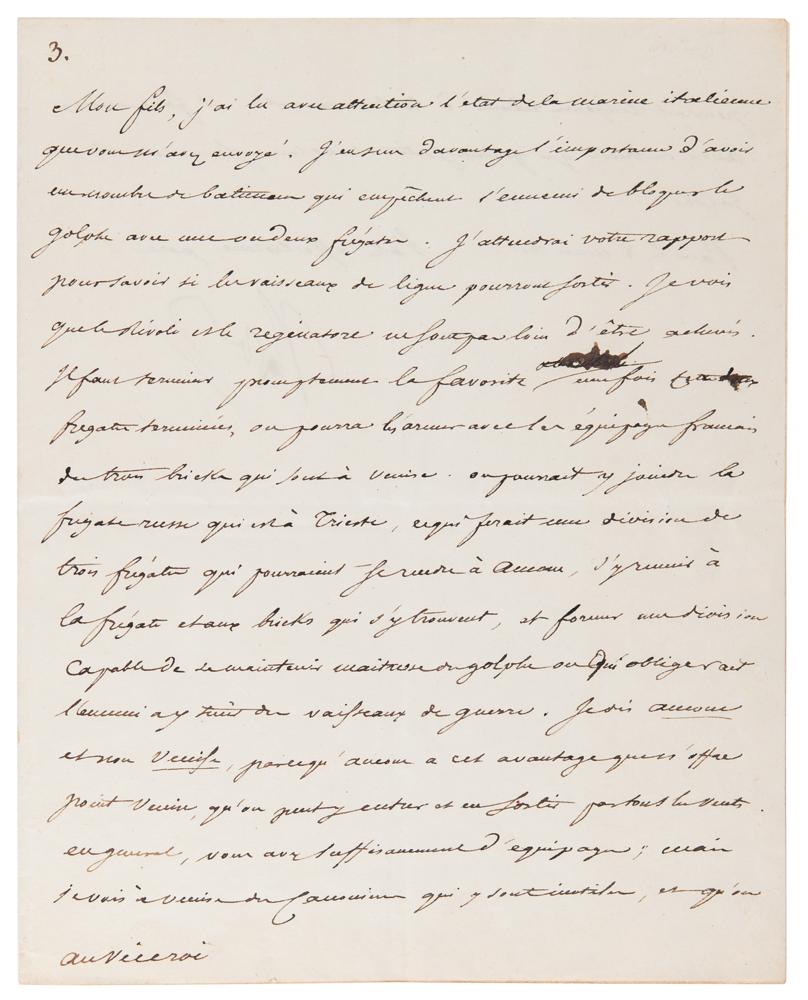 3.
Mon fils, j'ai lu avec attention l'etat de la marine italienne
que vous m'avez envoyé. J'en sens davantage l'importance d'avoir
un nombre de batimens qui empêchent l'ennemi de bloquer le
golphe avec une ou deux frégates. J'attendrai votre rapport
pour savoir si les vaisseaux de ligne pourront sortir. Je vois
que le Rivoli et le regénératore ne sont pas loin d'être achevés.
Il faut terminer promptement la favorite une fois
fregates terminées, on pourra l'armer avec les équipages francais
des trois bricks qui sont à Venise. on pourrait y joindre la
frégate russe qui est à Trieste, ce qui ferait une division de
trois frégates qui pourraient se rendre à Ancone, s'y reunir à
la frégate et aux bricks qui s'y trouvent, et former une division
capable de se maintenir maitresse du golphe ou qui obligerait
l'ennemi a y tenir des vaisseaux de guerre. Je dis ancone
et non Venise, parcequ'ancone a cet avantage que n'offre
point Venise, qu'on peut y entrer et en sortir par tous les vents.
en general, vous avez suffisamment d'équipages; mais
je vois à venise des Canonnieres qui y sont inutiles, et qu'on
au Viceroi